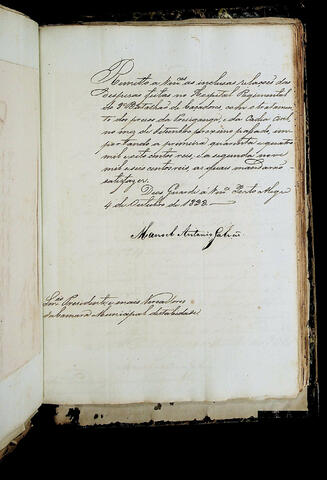 Remetto a Vm.ces as inclusas relações das
despesas feitas no Hospital Regimental
do Batalhão de Caçadores, com o tratamen
to dos presos da e da Cadia Civil,
no mez de Setembro proximo passado, im-
portando a primeira quarenta e quatro
mil e oito centos reis, e a segunda nove
mil e seis centos reis as quaes mandarão
satisfazer.
Deos Guarde a Vm.ces Porto Alegre
4 de Outubro de 1838.
Manoel Antonio Galvão
Snr.es Presidente, e mais Vereadores
da Camara Municipal desta Cidade